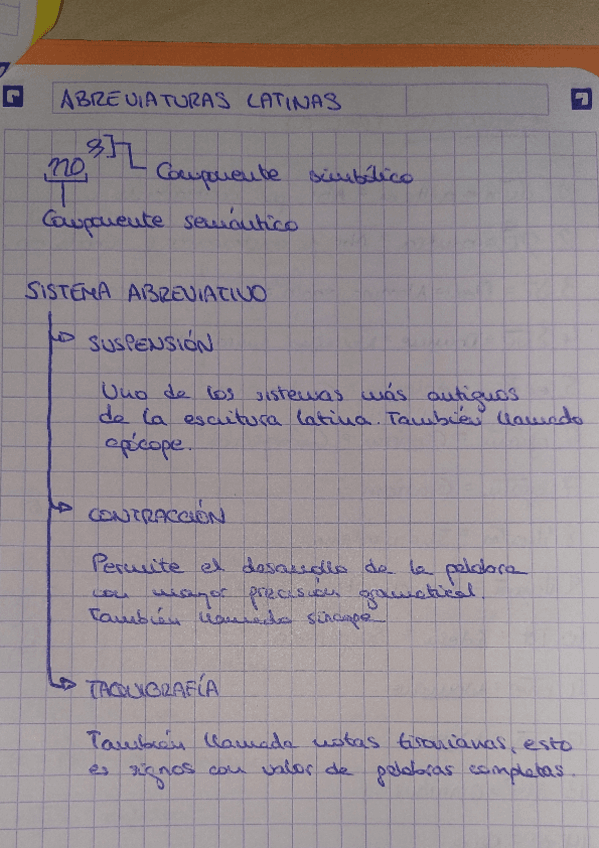 ABREVIATURAS LATINAS
no Componente simbólico
Componente semántico
SISTEMA ABREVIATIVO
SUSPENSIÓN
Uno de los sistemas más antiguos
de la escritura latina. También llamado
apócope.
CONTRACCIÓN
Permite el desarrollo de la palabra
con mayor precisión gramatical.
También llamado síncope
TAQUIGRAFÍA
También llamada notas tironianas, esto
es signos con valor de palabras completas.